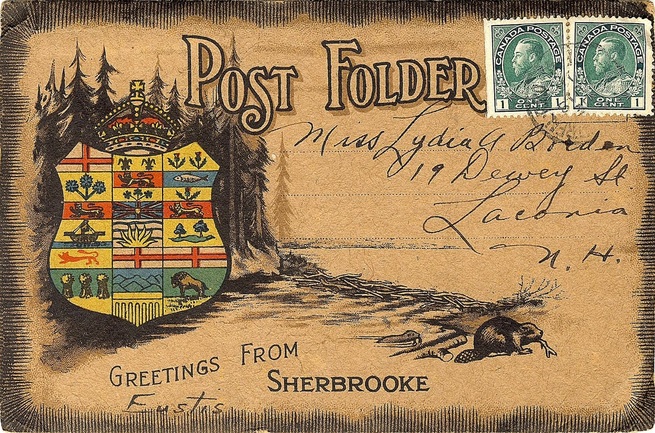 POST FOLDER
CANADA POSTAGE
1 ONE CENT 1
CANADA POSTAGE
1 ONE CENT 1
Miss Lydia A Borden
19 Dewey St.
Laconia
N. H.
GREETINGS FROM
SHERBROOKE
Eustis